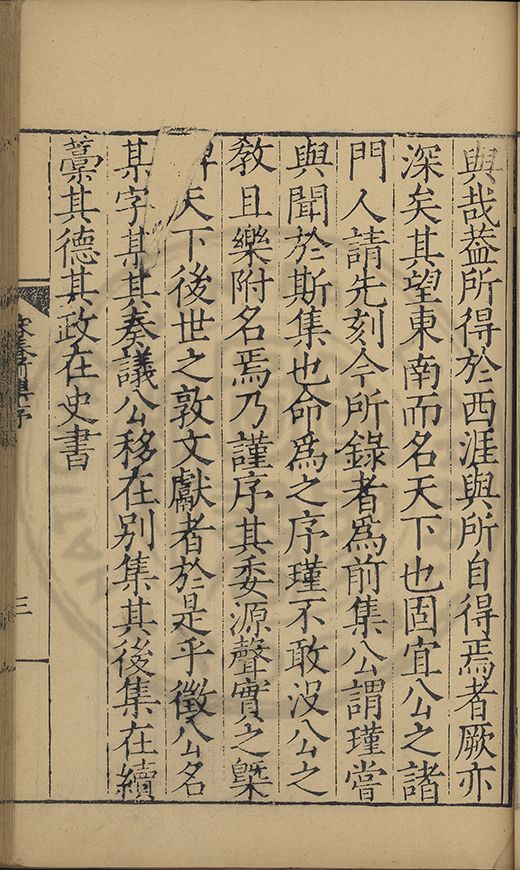 與哉葢所得於西涯與所自得焉者厥亦
深矣其望東南而名天下也固宜公之諸
門人請先刻今所錄者為前集公謂瑾嘗
與聞於斯集也命爲之序瑾不敢没公之
敎且樂附名焉乃謹序其委源聲實之槩
俾天下後世之敦文獻者於是乎徵公名
某字某其奏議公移在别集其後集在續
藁其德其政在史書
三